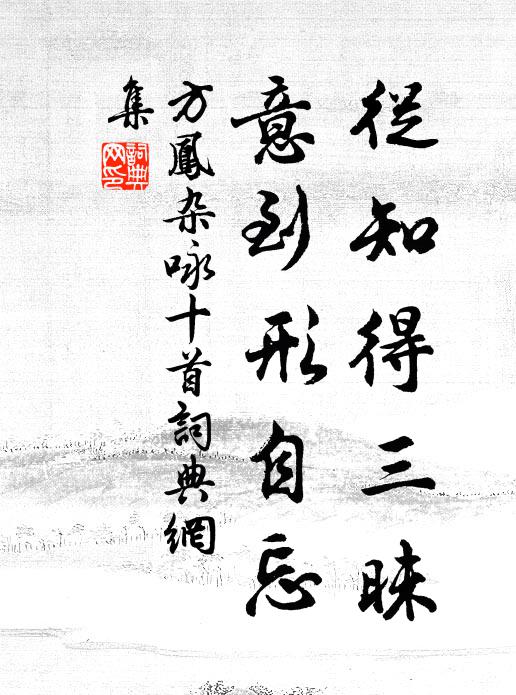 從知得三昧
意到形自忘
方鳳杂咏十首詞典網
集
詞典网印